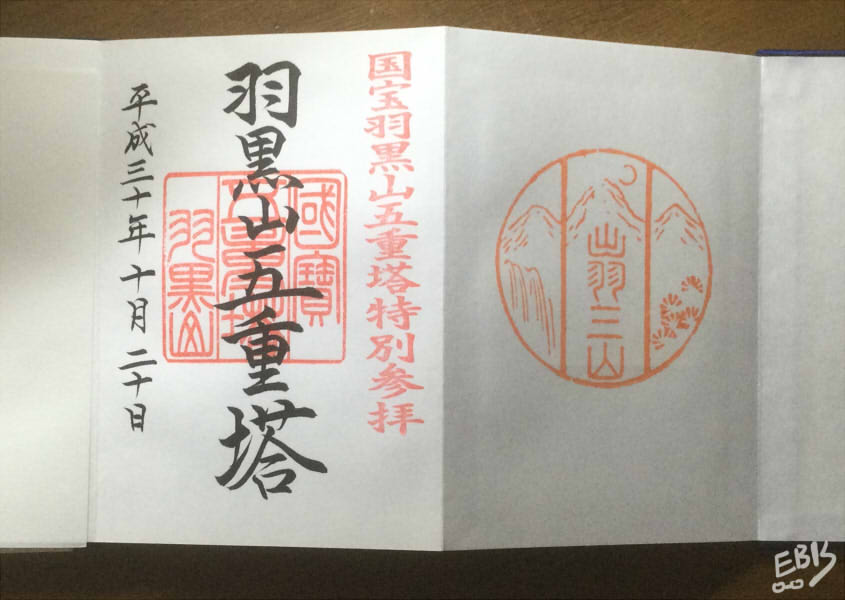 出羽三山
国宝羽黒山五重塔特別参拝
羽黒山五重塔
國寶
五重塔
羽黒山
平成三十年十月二十日